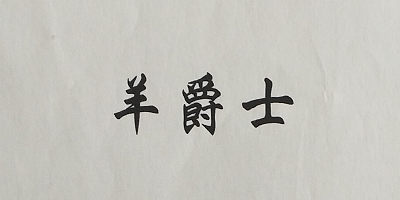 羊爵士